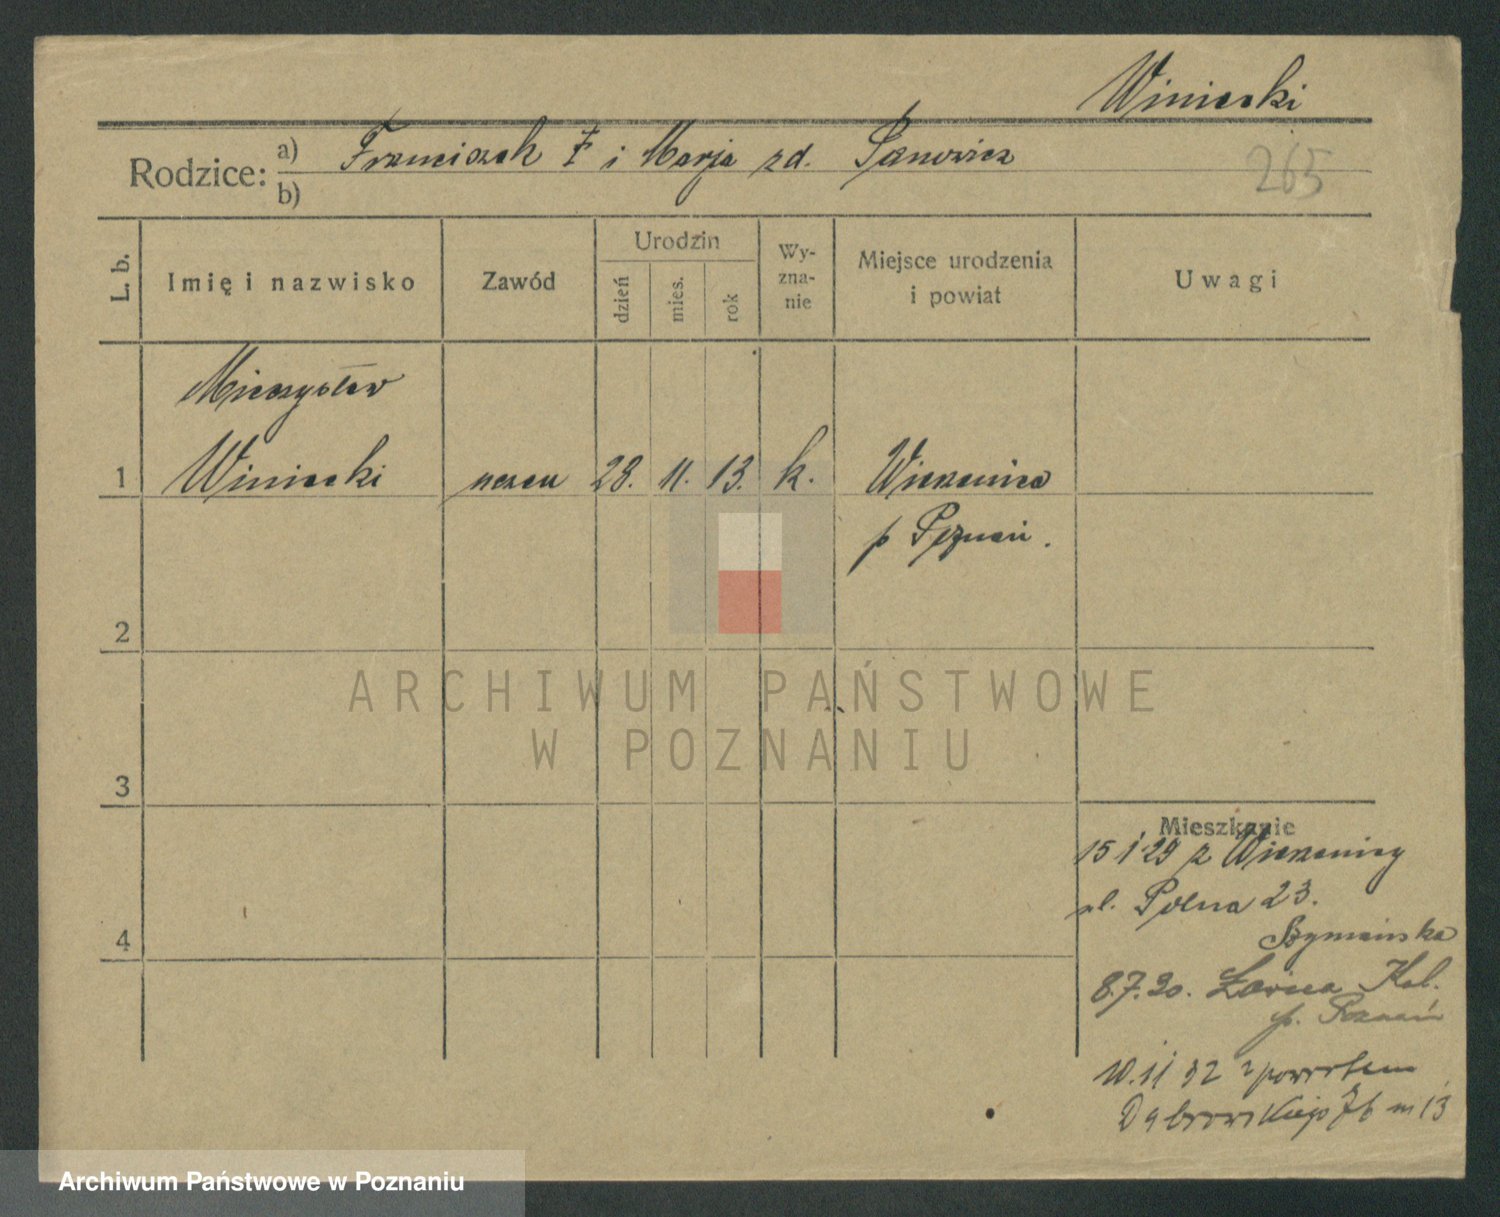 Winiecki
Rodzice: a) Franciszek i Marja zd. Janowicz
b)
265
L. b.
Imię i nazwisko
Zawód
Urodzin
dzień
mies.
rok
Wy-
zna-
nie
Miejsce urodzenia
i powiat
Uwagi
Mieczysław
1 Winiecki uczeń 28. 11. 13. k. Wierzenica
p Poznań.
2
ARCHIWUM PAŃSTWOWE
W POZNANIU
3
Mieszkanie
15 1 29 z Wierzenicy
ul. Polna 23.
Szymańska
4
8.7.30. Ławica Kol.
p. Poznań
10.11 32 z powrotem
Dąbrowskiego 76 m 13
Archiwum Państwowe w Poznaniu